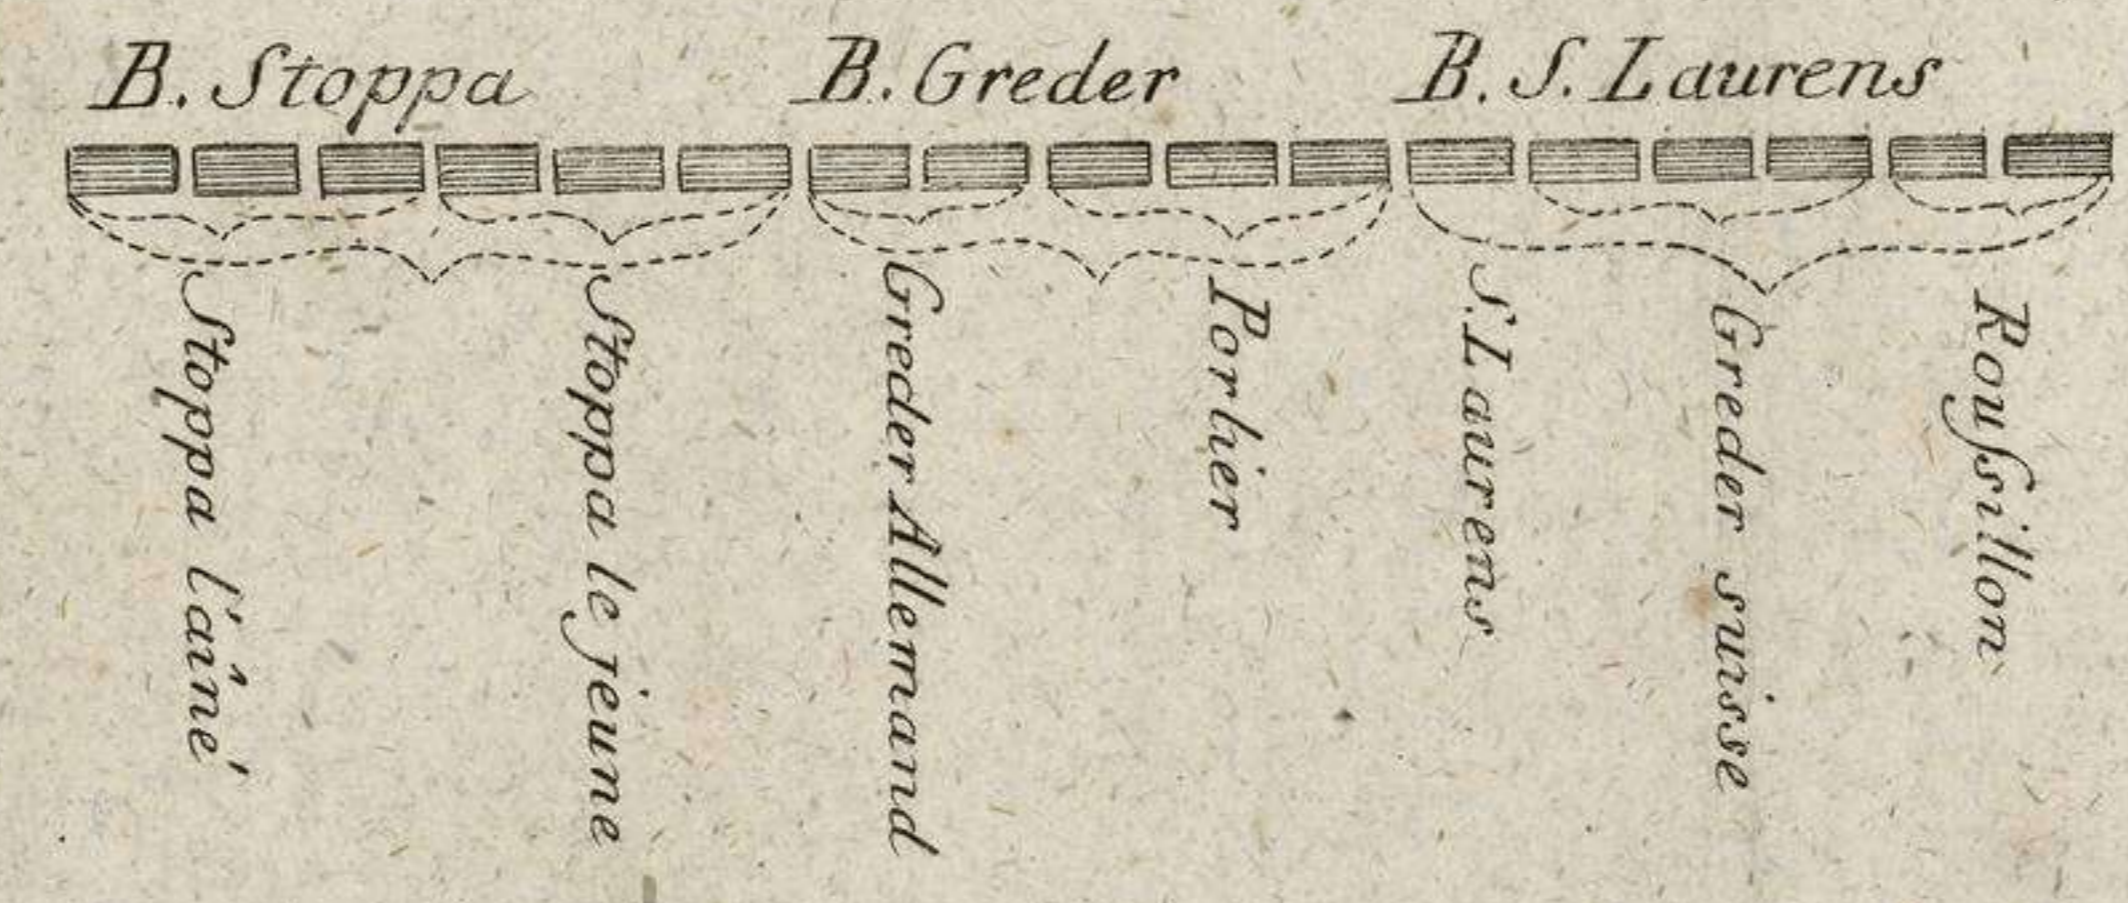 B. Stoppa
B. Greder
B. S. Laurens
Stoppa l'aîné
Stoppa le jeune
Greder Allemand
Porlier
S. Laurens
Greder suisse
Rouſsillon